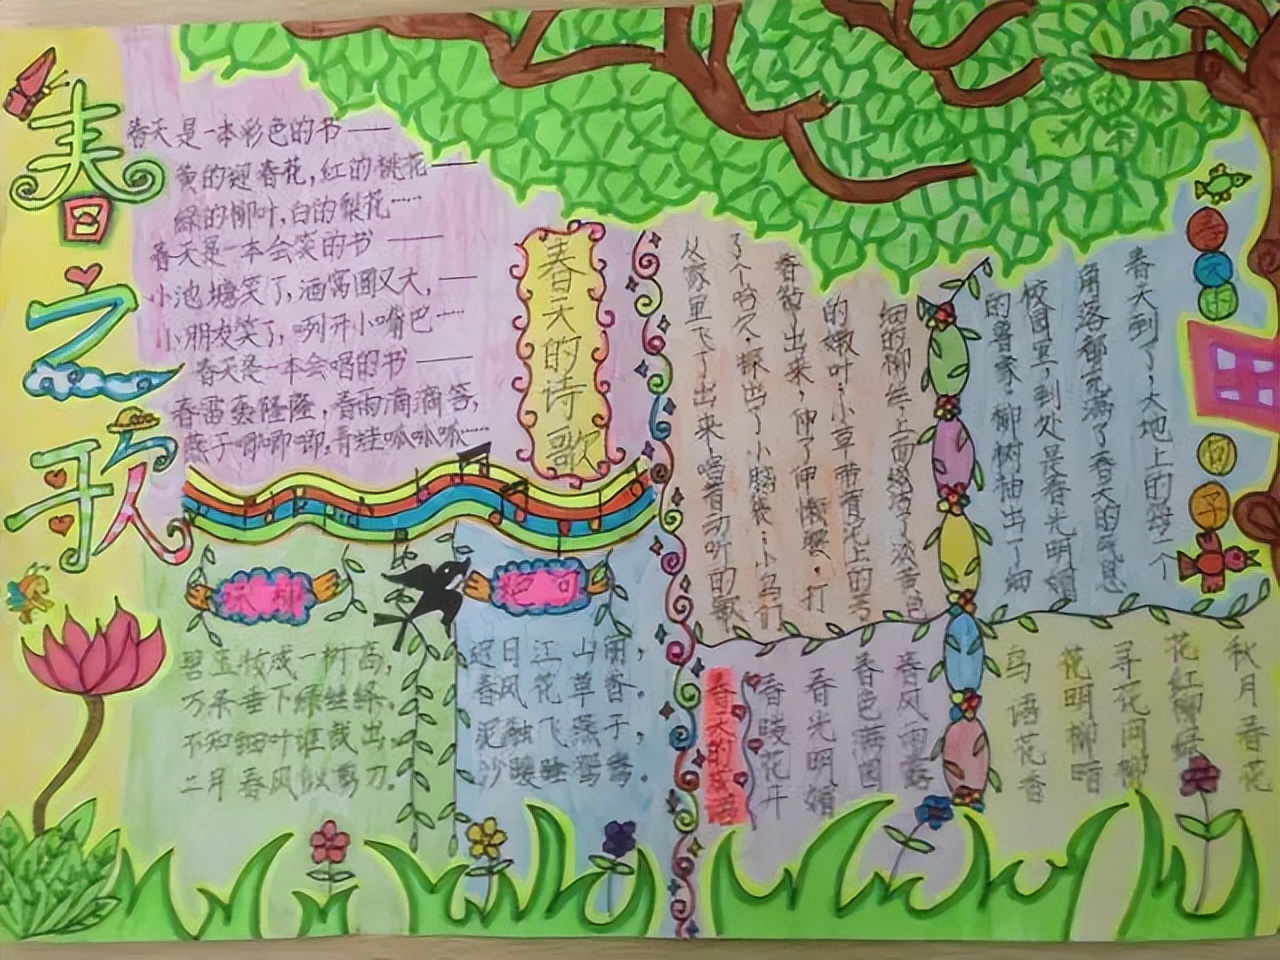 春之歌
春天是一本彩色的书——
黄的迎春花，红的桃花——
绿的柳叶，白的梨花……
春天是一本会笑的书——
小池塘笑了，酒窝圆又大，——
小朋友笑了，咧开小嘴巴……
春天是一本会唱的书——
春雷轰隆隆，春雨滴滴答，
燕子唧唧唧，青蛙呱呱呱……
春天的诗歌
咏柳
碧玉妆成一树高，
万条垂下绿丝绦。
不知细叶谁裁出，
二月春风似剪刀。
绝句
迟日江山丽，
春风花草香。
泥融飞燕子，
沙暖睡鸳鸯。
春天的句子
春天到了，大地上的每一个
角落都充满了春天的气息
校园里，到处是春光明媚
的景象。柳树抽出了细
细的柳丝，上面缀满了淡黄色
的嫩叶；小草带着泥土的芳
春钻出来，伸了伸懒腰，打
了个哈欠，探出了小脑袋；小鸟们
从家里飞了出来，唱着动听的歌
春天的成语
春暖花开
春光明媚
春色满园
春风雨露
鸟语花香
花明柳暗
寻花问柳
花红柳绿
秋月春花